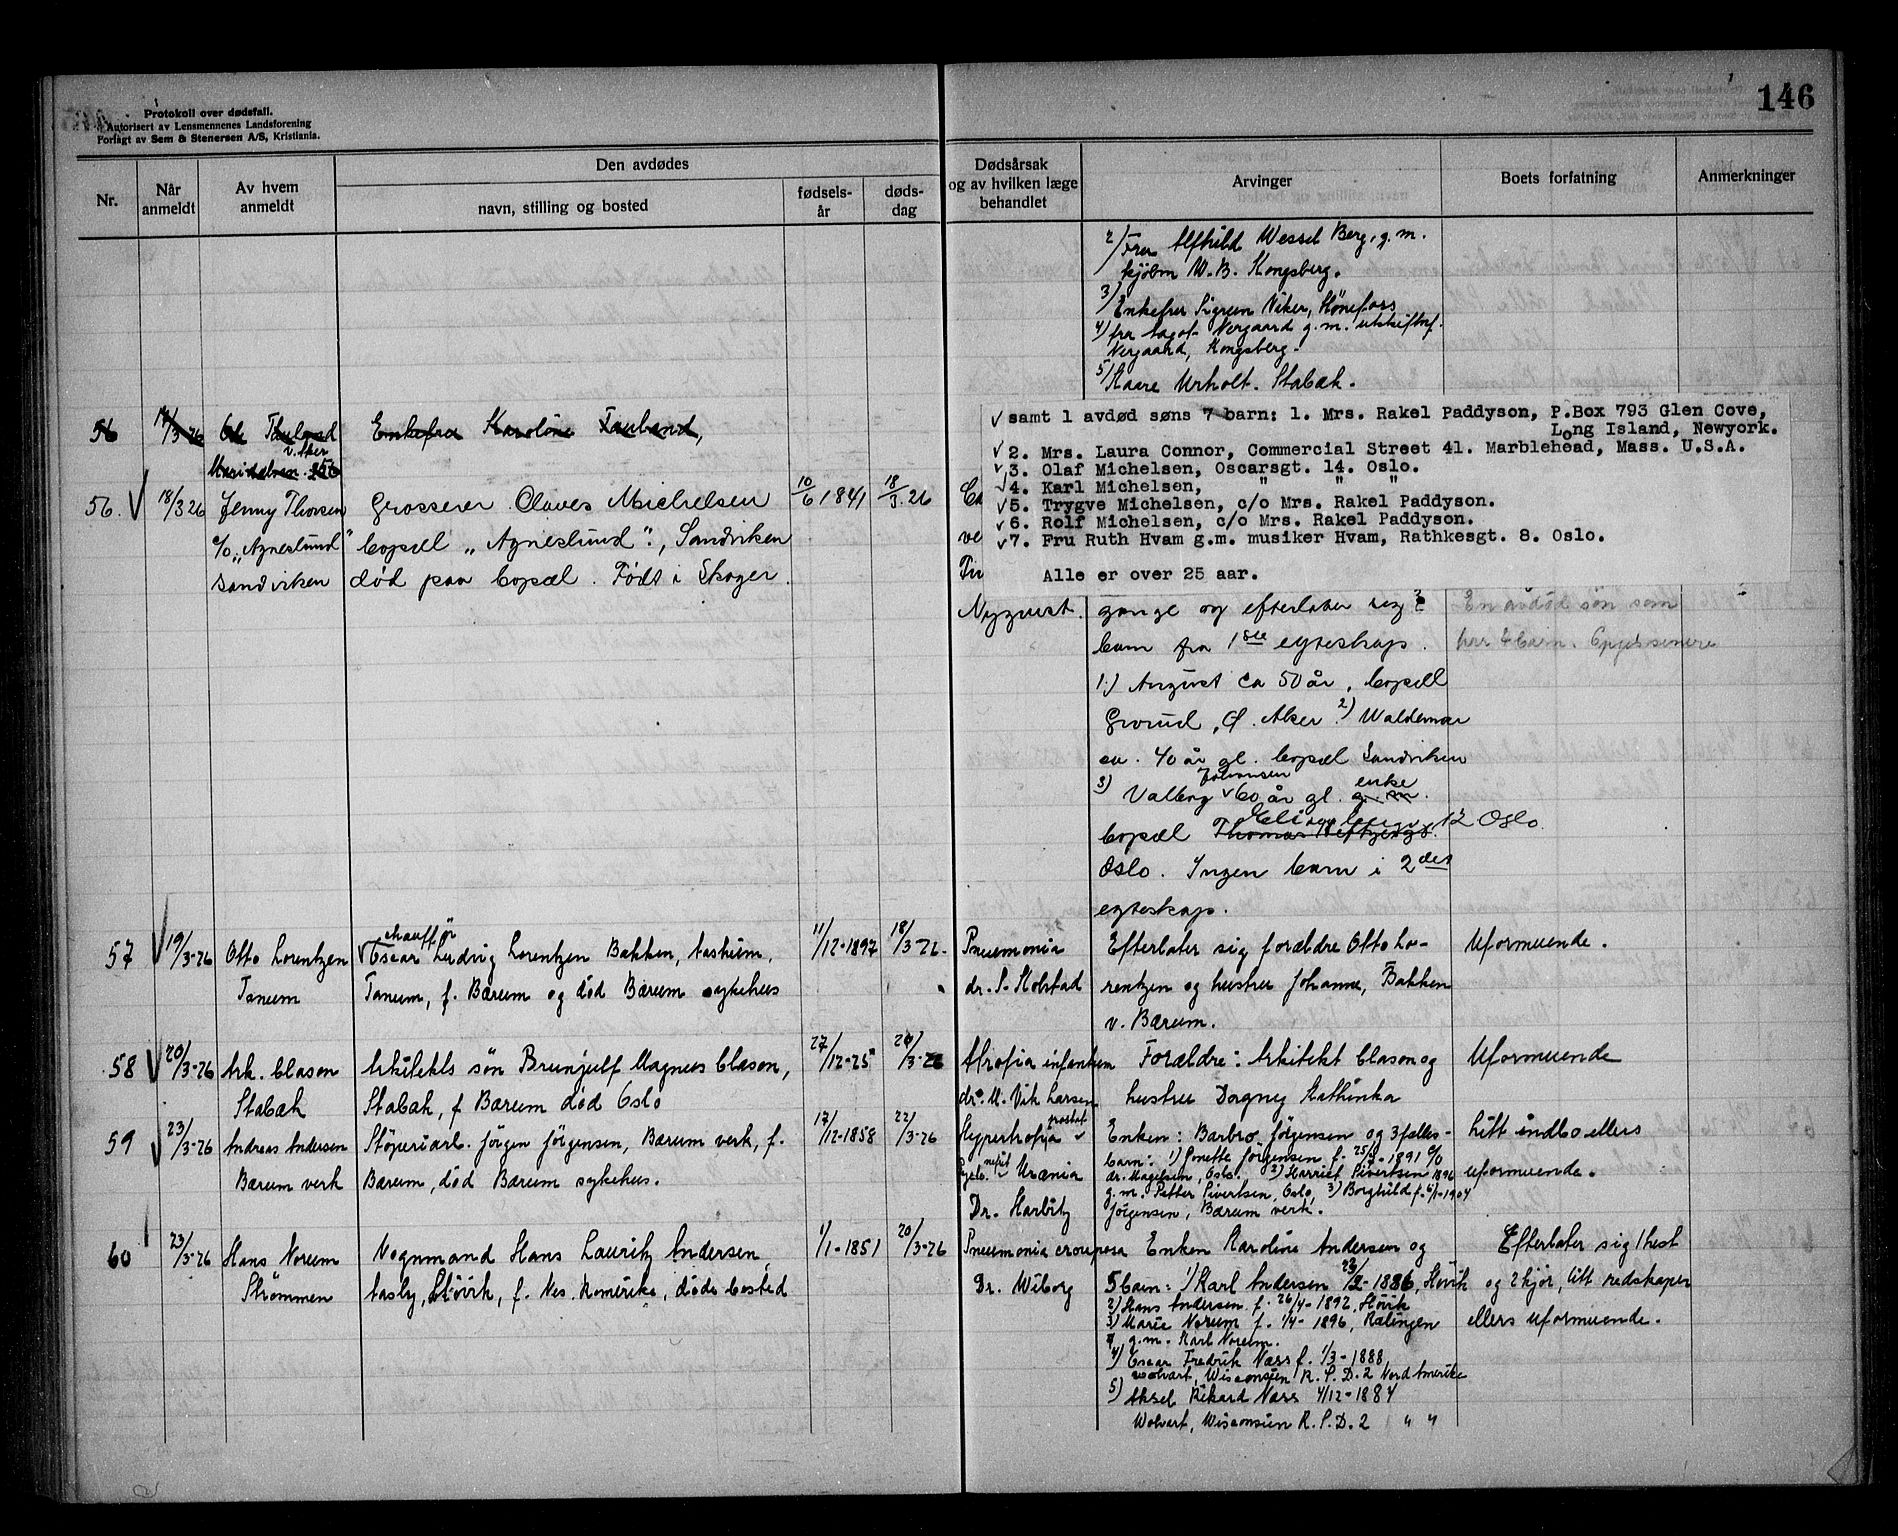 146
Protokoll over dødsfall.
Autorisert av Lensmennenes Landsforening
Forlagt av Sem & Stenersen A/S, Kristiania.
Nr.
Når anmeldt
Av hvem anmeldt
Den avdødes
navn, stilling og bosted
fødsels-år
døds-dag
Dødsårsak og av hvilken læge behandlet
Arvinger
Boets forfatning
Anmerkninger
2) Frue Alfhild Wessel Berg, g.m.
kjøbm W.B. Kongsberg.
3) Enkefru Sigrun Viker, Hönefoss
4) fru Nergaard g.m. utskiftnf.
Nergaard, Kongsberg.
5) Kaare Urholt. Stabæk.
56 Enkefru Karoline
samt 1 avdød søns 7 barn: 1. Mrs. Rakel Paddyson, P.Box 793 Glen Cove,
Long Island, Newyork.
2. Mrs. Laura Connor, Commercial Street 41. Marblehead, Mass. U.S.A.
3. Olaf Michelsen, Oscarsgt. 14. Oslo.
4. Karl Michelsen, " " "
5. Trygve Michelsen, c/o Mrs. Rakel Paddyson.
6. Rolf Michelsen, c/o Mrs. Rakel Paddyson.
7. Fru Ruth Hvam g.m. musiker Hvam, Rathkesgt. 8. Oslo.
Alle er over 25 aar.
56. 18/3 26 Jenny Thorsen Grosserer Olaves Michelsen 10/6 1841 18/3. 26
c/o "Agneslund" bopæll "Agneslund", Sandviken
Sandviken død paa bopæl. Født i Skoger.
Nyquist. gange og efterlater seg 3 En avdød søn som
barn fra 1ste egteskap. har 7 barn. Opgis senere
1.) August ca 50 år, bopæll
Grorud, Ø. Aker. 2) Waldemar
ca. 40 år gl. bopæl Sandviken
3) Valborg Johansen 60 år gl. g.m. enke
bopæl Thomas Heftyesgt. 12 Oslo
Oslo. Ingen barn i 2det
egteskap.
57 19/3-26 Otto Lorentzen chauffør Oscar Ludvig Lorentzen Bakken, Tanum, 11/12-1897 18/3-26. Pneumonia Efterlater sig forældre Otto Lo- Uformuende.
Tanum Tanum, f. Bærum og död Bærum sykehus dr. S. Kolstad rentzen og hustru Johanne, Bakken
v. Bærum.
58 20/3-26 Ark. Clason Arkitekts sön Brunjulf Magnus Clason, 27/12-25 20/3-26 Atrofia infantum Forældre: Arkitekt Clason og Uformuende
Stabæk Stabæk, f Bærum död Oslo dr. M. Vik Larsen hustru Dagny Kathinka
59 23/3-26 Andreas Andersen Stöperiarb. Jörgen Jörgensen, Bærum verk, f. 17/12-1858 22/3-26 Hypertrofia prostat Enken: Barbro Jörgensen og 3 fælles- Litt indbo ellers
barn: 1) Ponette Jörgensen f. 25/5-1891 c/o
Bærum verk Bærum, död Bærum sykehus. Pyelo. nefrit Uræmia dr. Magelssen, Oslo. 2) Harriet Sivertsen 1896 uformuende.
g.m. Petter Sivertsen, Oslo, 3) Borghild f. 6/1-1904
Dr. Harbitz Jörgensen, Bærum verk.
60 23/3-26 Hans Noreum Vognmand Hans Lauritz Andersen, 1/1-1851 20/3-26 Pneumonia crouposa Enken Karoline Andersen og Efterlater sig 1 hest
Strømmen Aasby, Hövik, f. Nes. Romerike, död i bosted Dr. Wiborg 5 barn: 1) Karl Andersen 23/2-1886, Hövik og 2 kjör, litt redskaper
2) Hans Andersen f. 26/4-1892, Hövik
3) Marie Noreum f. 1/4-1896, Rælingen ellers uformuende.
g.m. Karl Noreum.
4) Oscar Fredrik Næss f. 1/3-1888
Wolvart, Wisconsin R.F.D. 2 Nord Amerika
5) Aksel Rikard Næss 4/12-1884
Wolvart, Wisconsin R.F.D. 2 " "